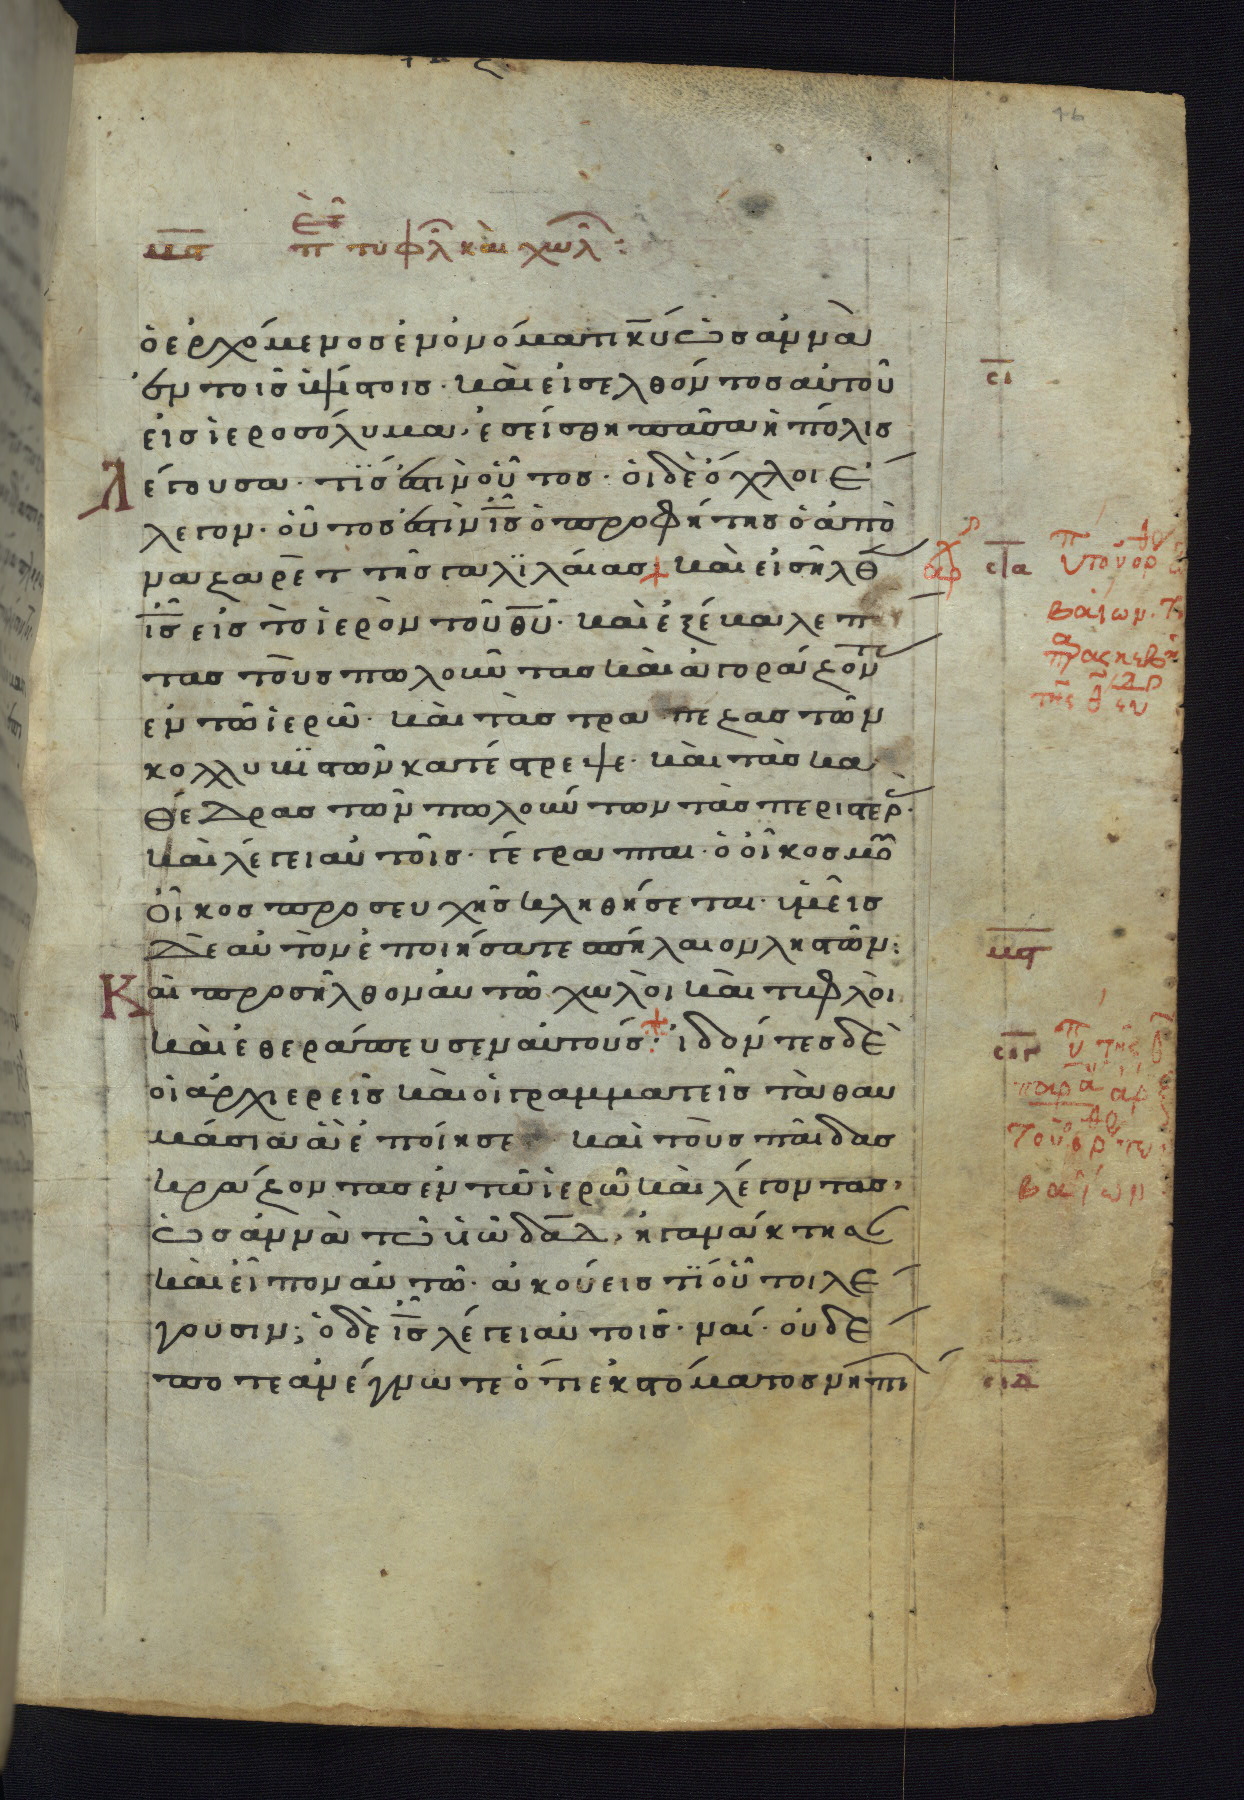 46
μϛ π τυφλ καὶ χωλ:
ὁ ἐρχόμενος ἐν ὀνόματι κυ ὡσαννὰ
ἐν τοῖς ὑψίστοις· καὶ εἰσελθόντος αὐτοῦ
εἰς ἱεροσόλυμα, ἐσείσθη πᾶσα ἡ πόλις
λέγουσα· τίς ἐστὶν οὗτος· οἱ δὲ ὄχλοι ἔ
λεγον· οὗτος ἐστὶν ις ὁ προφήτης ὁ ἀπὸ
ναζαρὲτ τῆς γαλιλαίας + καὶ εἰσῆλθ
ις εἰς τὸ ἱερὸν τοῦ θυ· καὶ ἐξέβαλε π
τας τοὺς πωλοῦντας καὶ ἀγοράζοντ
ἐν τῶ ἱερῶ· καὶ τὰς τραπέζας τῶν
κολλυβιστῶν κατέστρεψε· καὶ τὰς κα
θέδρας τῶν πωλούντων τὰς περιστερ·
καὶ λέγει αὐτοῖς· γέγραπται· ὁ οἶκος μου
οἶκος προσευχῆς κληθήσεται· ὑμεῖς
δὲ αὐτὸν ἐποιήσατε σπήλαιον ληστῶν:
Καὶ προσῆλθον αὐτῶ χωλοὶ καὶ τυφλοὶ
καὶ ἐθεράπευσεν αὐτούς· + ἰδόντες δὲ
οἱ ἀρχιερεῖς καὶ οἱ γραμματεῖς τὰ θαυ
μάσια ἃ ἐποίησε καὶ τοὺς παῖδας
κράζοντας ἐν τῶ ἱερῶ καὶ λέγοντας,
ὡσαννὰ τῶ υἱῶ δαδ, ἠγανάκτησ
καὶ εἶπον αὐτῶ· ἀκούεις τί οὗτοι λέ
γουσιν; ὁ δὲ ις λέγει αὐτοῖς· ναί· οὐδέ
ποτε ἀνέγνωτε ὅτι ἐκ στόματος νηπί
σι
αρχ
σια
βαΐων·
μϛ
σιγ
βαΐων
σιδ